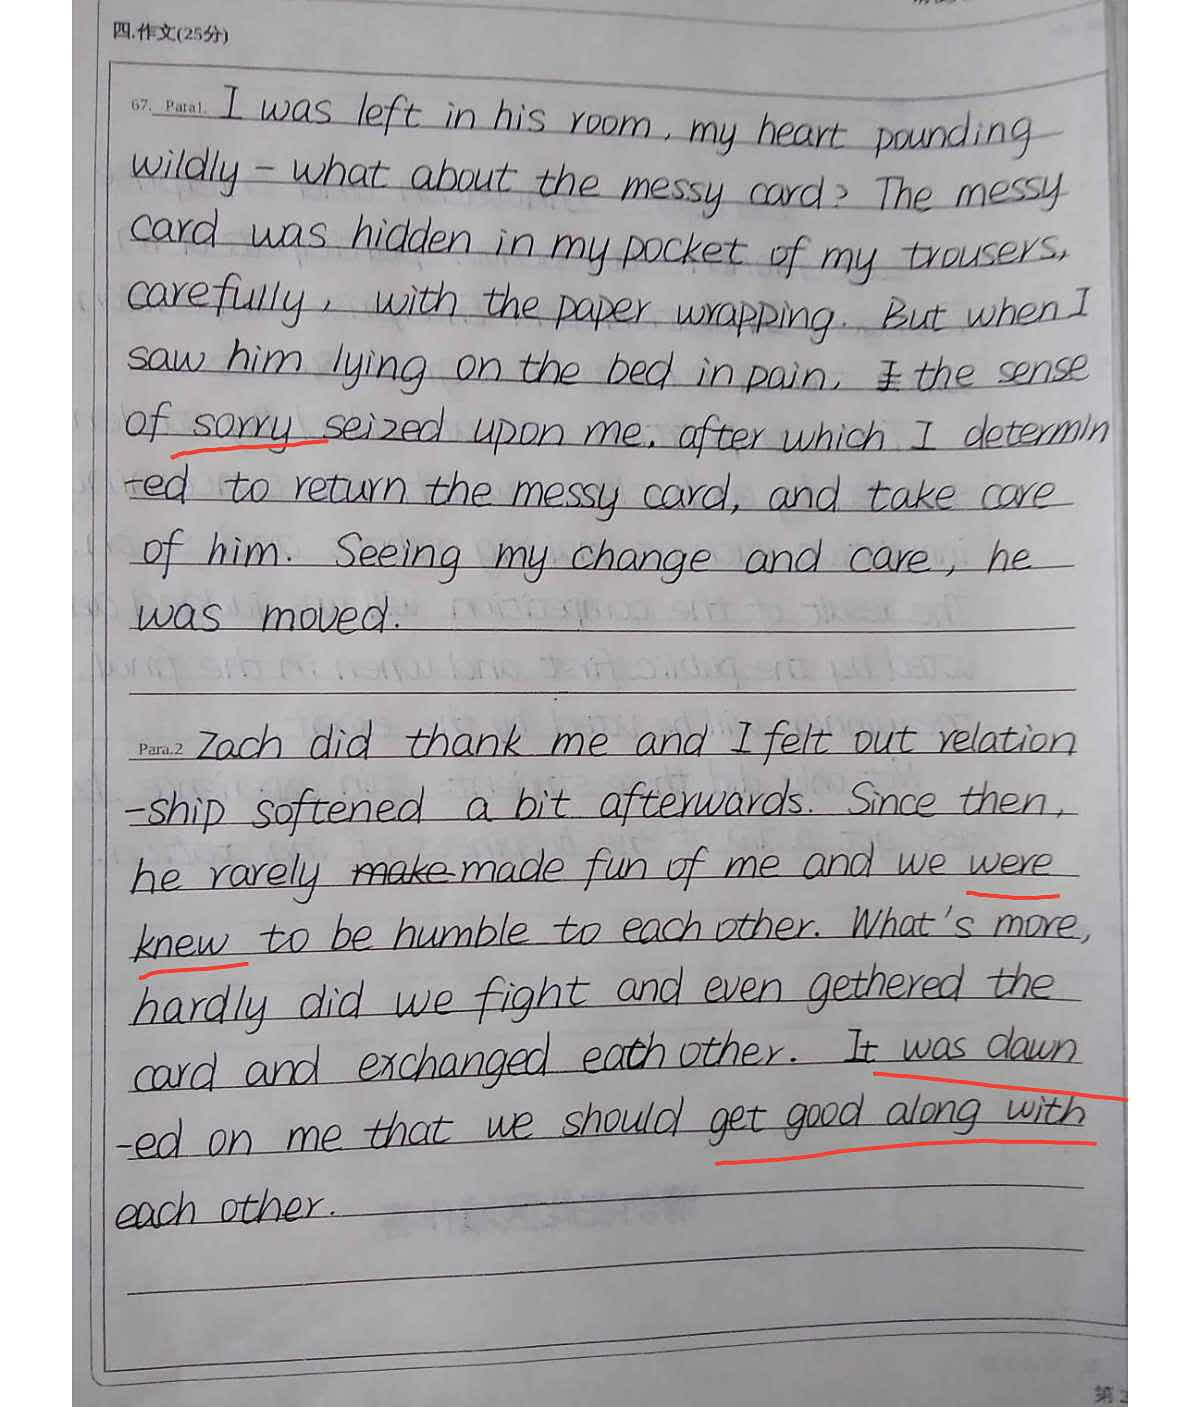 四.作文(25分)
67. Para1. I was left in his room, my heart pounding
wildly - what about the messy card? The messy
card was hidden in my pocket of my trousers,
carefully, with the paper wrapping. But when I
saw him lying on the bed in pain, the sense
of sorry seized upon me, after which I determin
-ed to return the messy card, and take care
of him. Seeing my change and care, he
was moved.
Para.2 Zach did thank me and I felt out relation
-ship softened a bit afterwards. Since then,
he rarely make made fun of me and we were
knew to be humble to each other. What's more,
hardly did we fight and even gethered the
card and exchanged each other. It was dawn
-ed on me that we should get good along with
each other.
第2